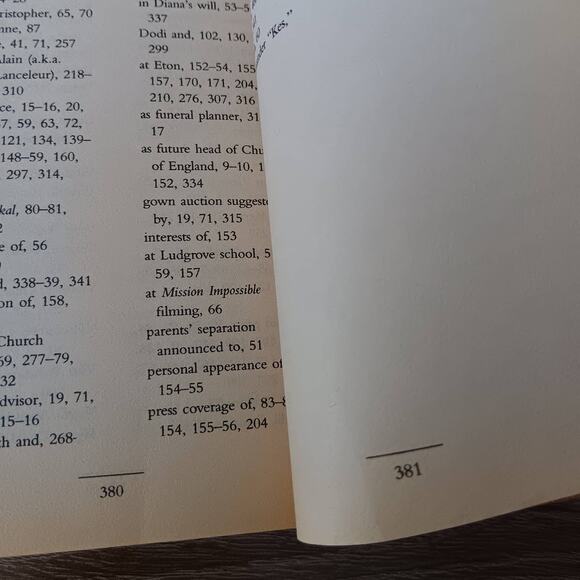 ristopher, 65, 70
nne, 87
, 41, 71, 257
lain (a.k.a.
Lanceleur), 218–
310
ce, 15–16, 20,
7, 59, 63, 72,
121, 134, 139–
148–59, 160,
, 297, 314,
kal, 80–81,
2
e of, 56
d, 338–39, 341
on of, 158,
Church
69, 277–79,
32
dvisor, 19, 71,
15–16
ch and, 268-
in Diana's will, 53–5
337
Dodi and, 102, 130,
299
at Eton, 152–54, 155
157, 170, 171, 204,
210, 276, 307, 316
as funeral planner, 31
17
as future head of Chu
of England, 9–10, 1
152, 334
gown auction suggeste
by, 19, 71, 315
interests of, 153
at Ludgrove school, 5
59, 157
at Mission Impossible
filming, 66
parents' separation
announced to, 51
personal appearance of
154–55
press coverage of, 83–8
154, 155–56, 204
380
"Kes,"
381